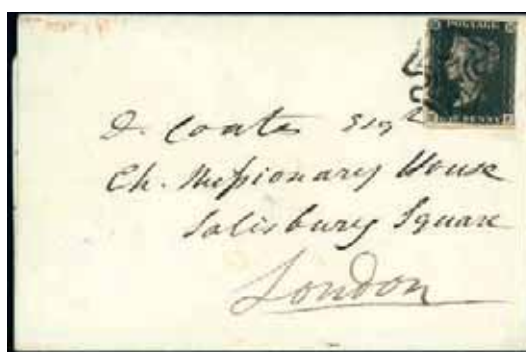 POSTAGE
ONE PENNY
D. Coates Esqr
Ch. Missionary House
Salisbury Square
London